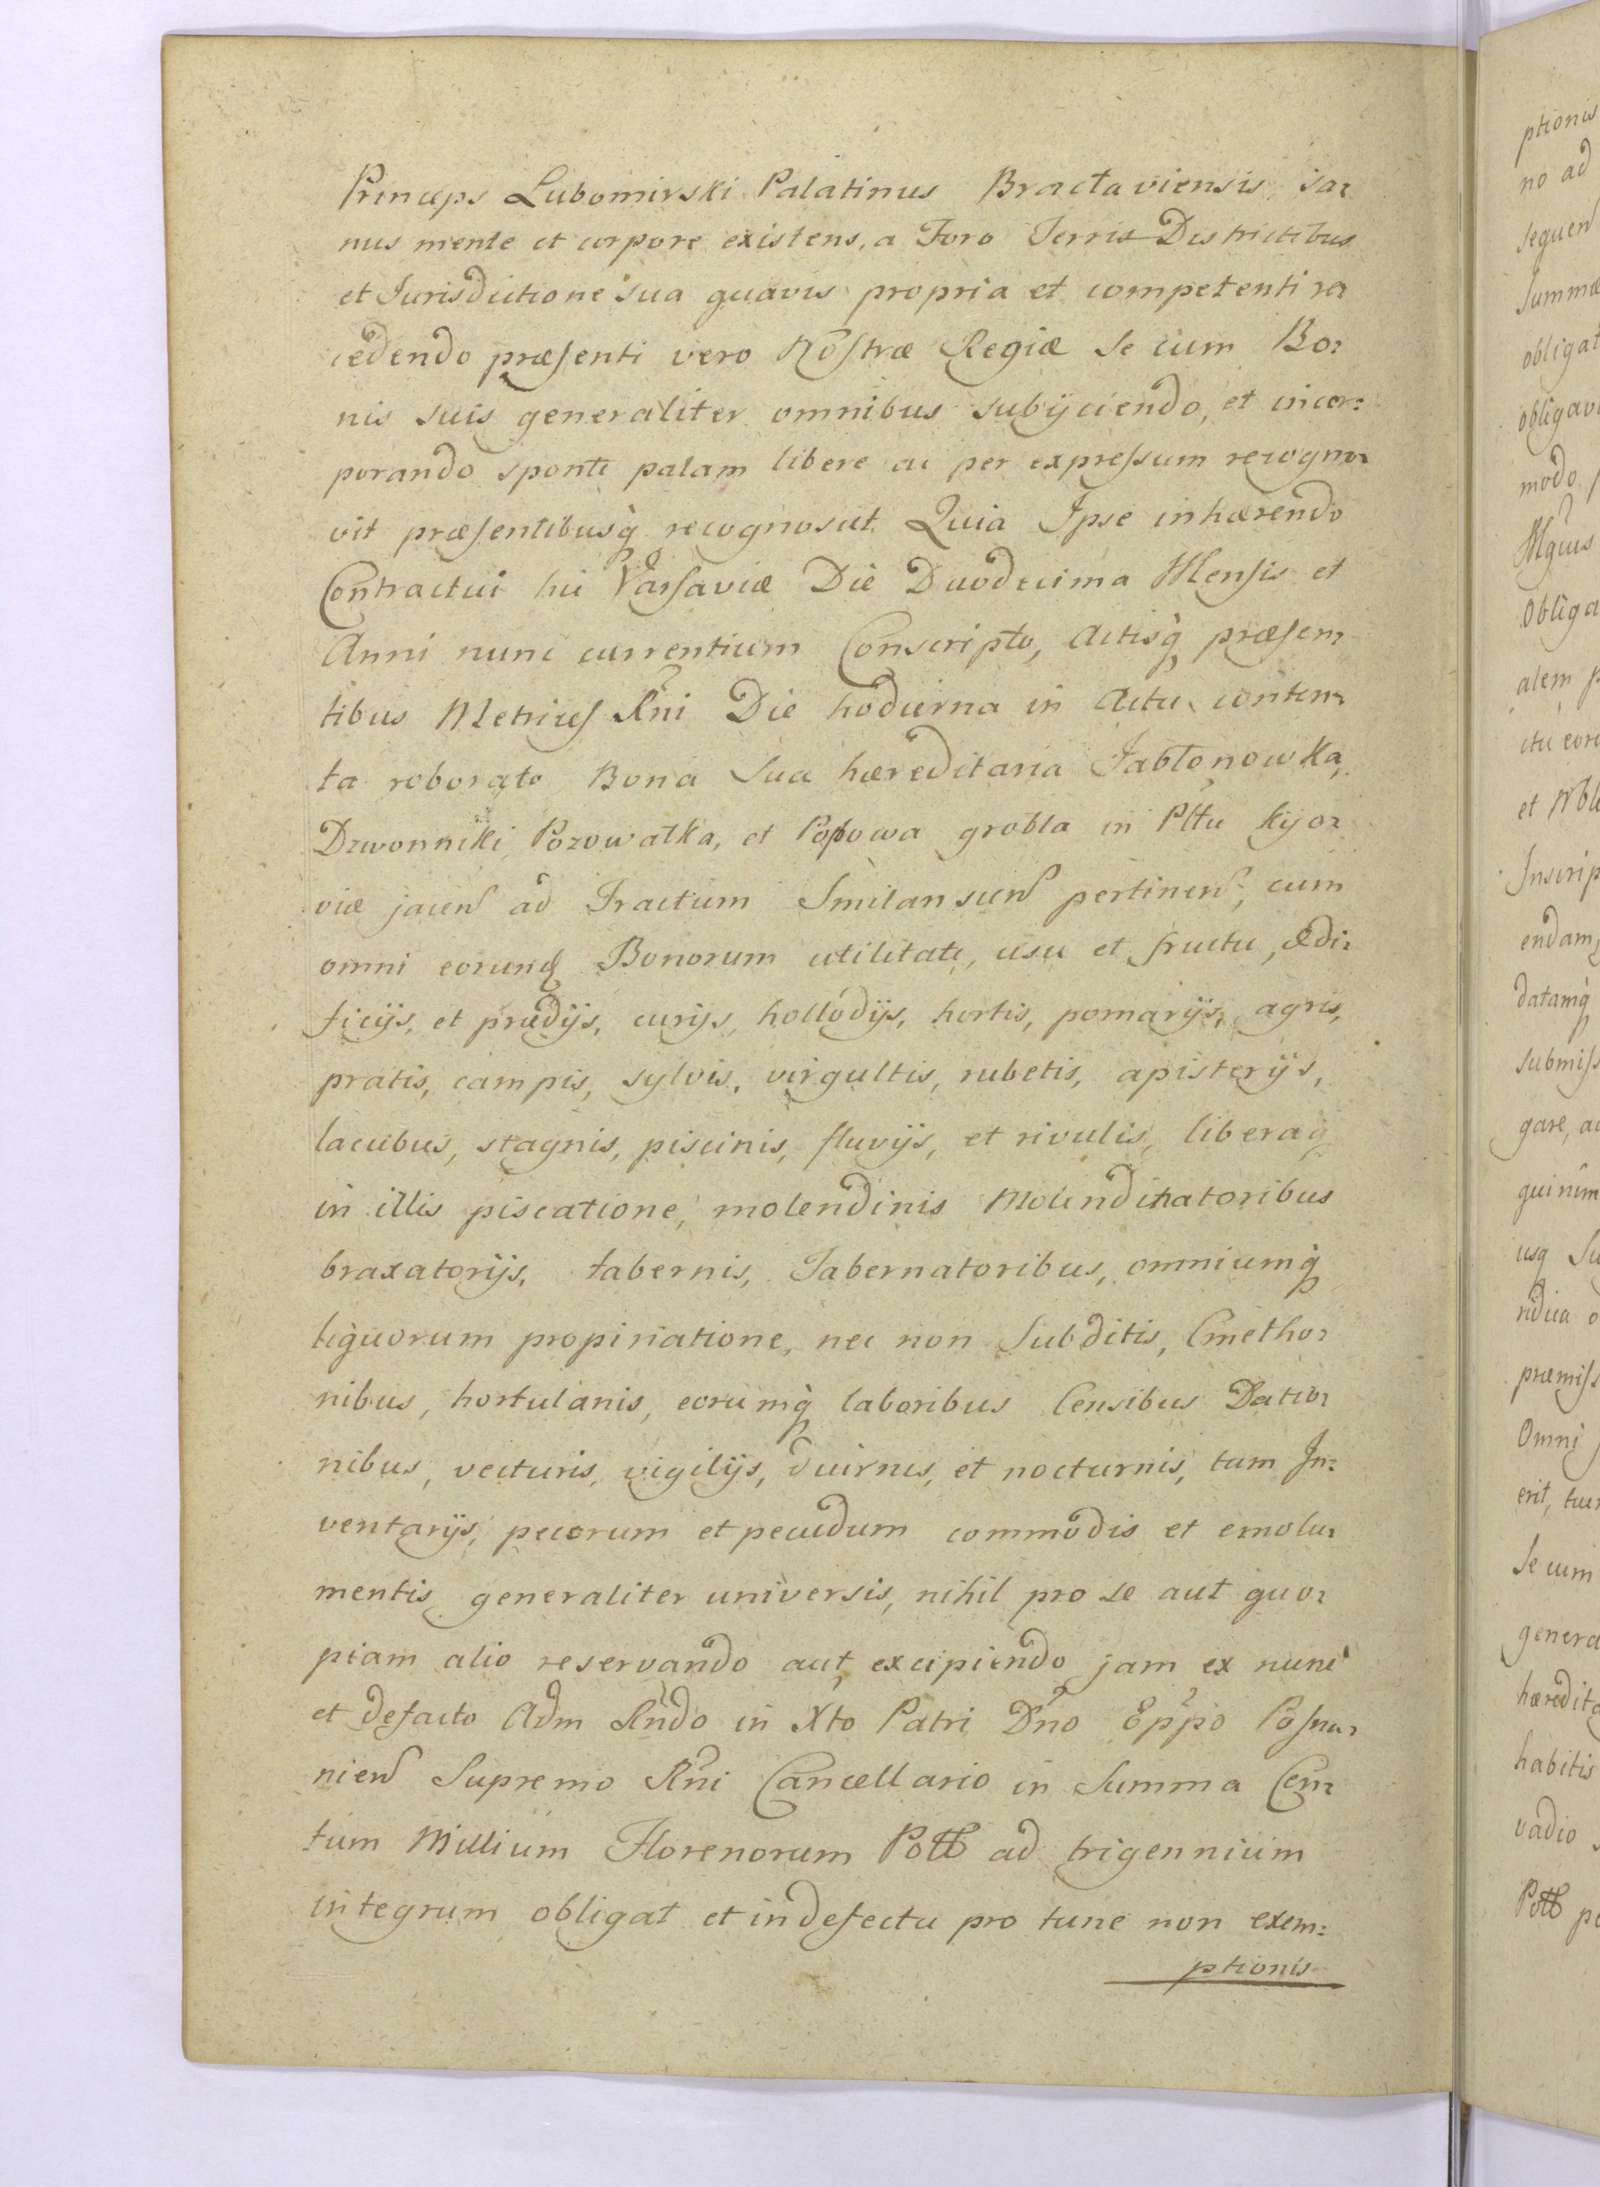 Princeps Lubomirski Palatinus Bractaviensis sa=
nus mente et corpore existens, a Foro Terris Districtibus
et Jurisdictione sua quavis propria et competenti re=
cedendo præsenti vero Nostræ Regiæ se cum Bo=
nis suis generaliter omnibus subijciendo, et incor=
porando sponte palam libere ac per expressum recogno=
vit præsentibusq̀ recognoscit. Quia Ipse inhærendo
Contractui hic Varsaviæ Die Duodecima Mensis et
Anni nunc currentium Conscripto, Actisq̀ præsen=
tibus Metrices Rñi Die hodierna in Actu conten=
ta roborato Bona sua hæreditaria Jabłonowka,
Dzwonniki Pozowatka, et Popowa grobla in Plttu Kijo=
viæ jacen ad Tractum Smilanscen pertinen, cum
omni eorund Bonorum utilitate, usu et fructu, ædi=
ficijs, et prædijs, curijs, hollodijs, hortis, pomarijs, agris,
pratis, campis, sylvis, virgultis, rubetis, apisterijs,
lacubus, stagnis, piscinis, fluvijs, et rivulis, liberaq
in illis piscatione, molendinis Molendinatoribus
braxatorijs, tabernis, Tabernatoribus, omniumq̀
liquorum propinatione, nec non Subditis, Cmetho=
nibus, hortulanis, eorumq̀ laboribus Censibus Datio=
nibus, vecturis, vigilijs, diurnis, et nocturnis, tum In=
ventarijs, pecorum et pecudum commodis et emolu=
mentis generaliter universis, nihil pro se aut quo=
piam alio reservando aut excipiendo jam ex nunc
et defacto Adm Rndo in Xto Patri Dño Eppo Posna=
nien Supremo Rñi Cancellario in Summa Cen=
tum Millium Florenorum Poll ad trigennium
integrum obligat et indefectu pro tunc non exem=
ptionis
ptionis
no ad
sequen
Summæ
obligat
obligav
modo
Obliga
alem
et Nbl
Inscrip
endam
datamq̀
submiss
gare, ac
usq Su
præmiss
Omni
erit, tu
Se cum
genera
hæredita
habitis
vadio
Poll